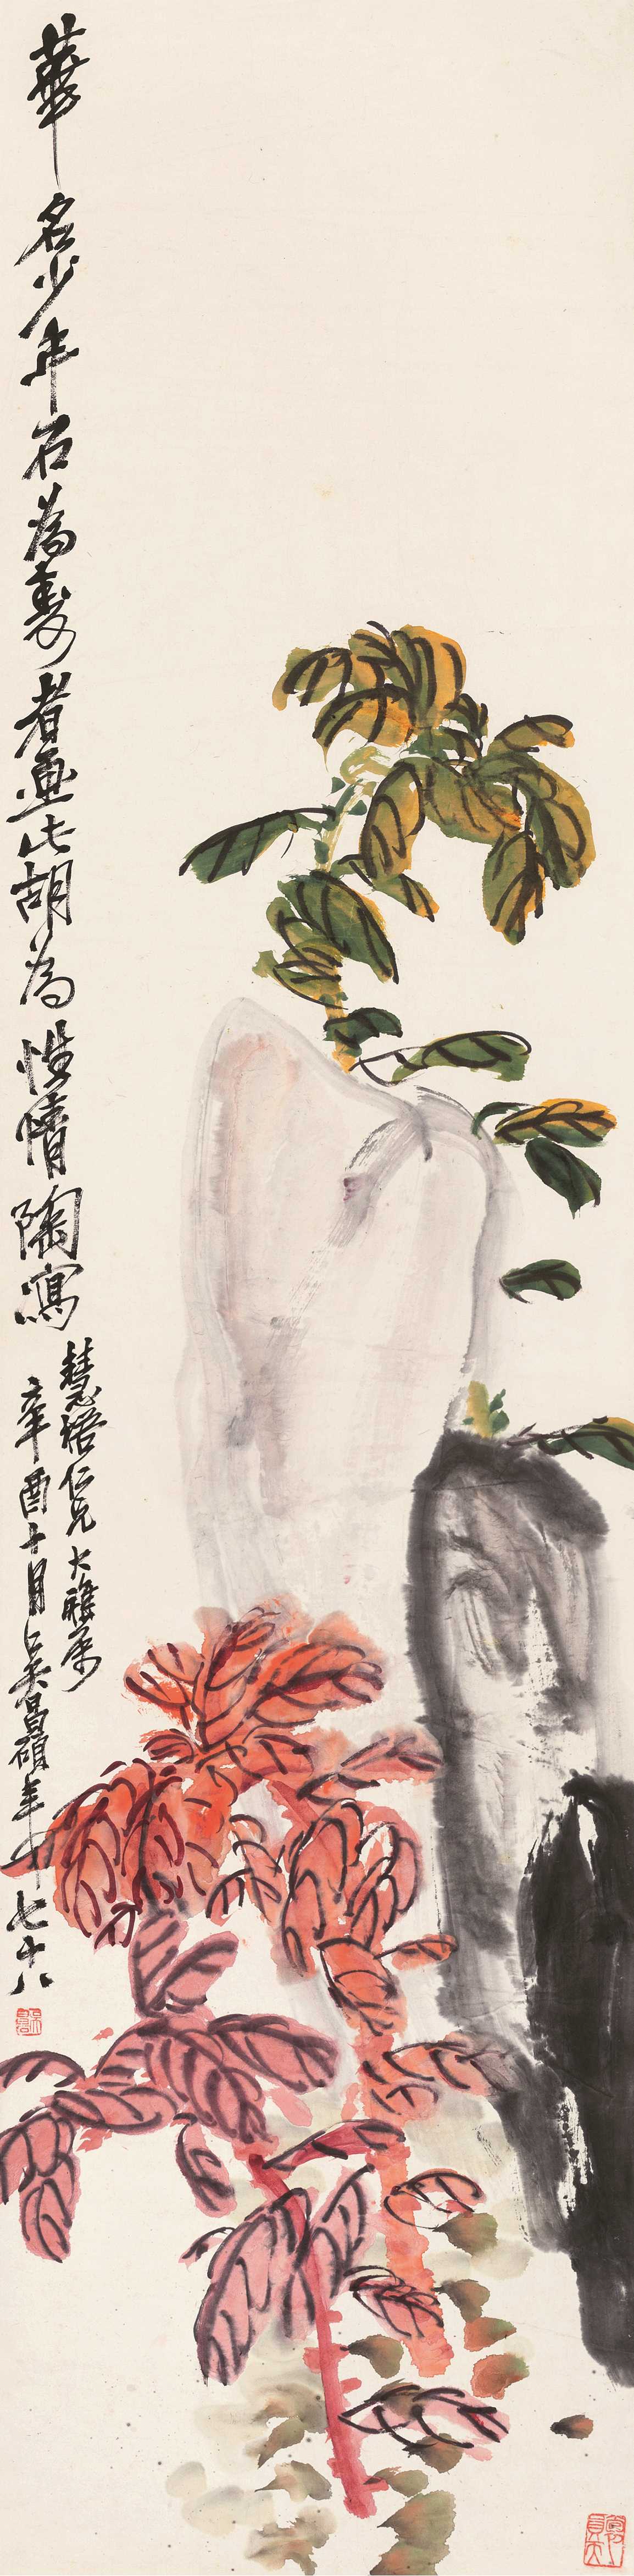 華名少年石為壽者畫此胡為性情陶寫
慧梧仁兄大雅屬
辛酉十月吳昌碩年七十八